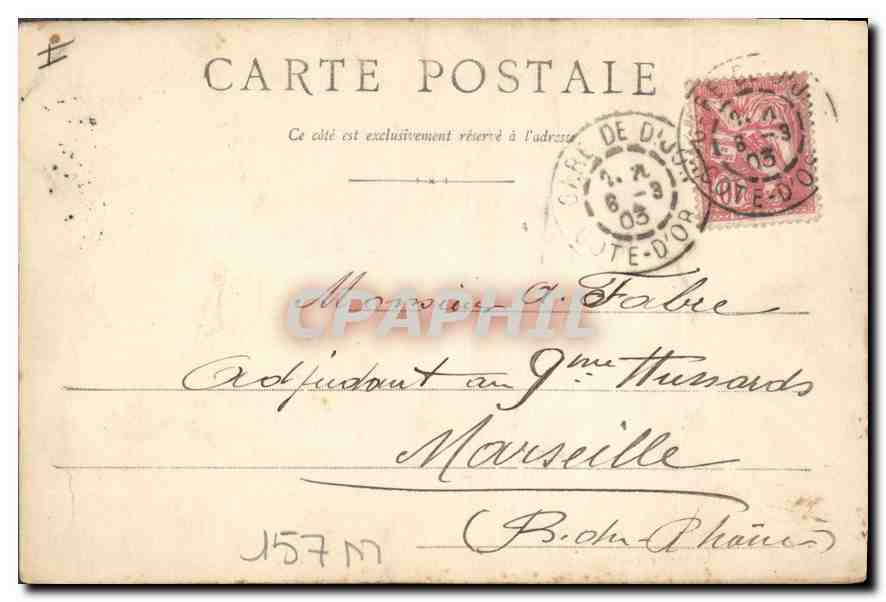 CARTE POSTALE
Ce côté est exclusivement réservé à l'adresse
GARE DE DIJON
6 -3
03
COTE-D'OR
CPAPHIL
Monsieur A. Fabre
Adjudant au 9me Hussards
Marseille
(B. du Rhône)
157 M